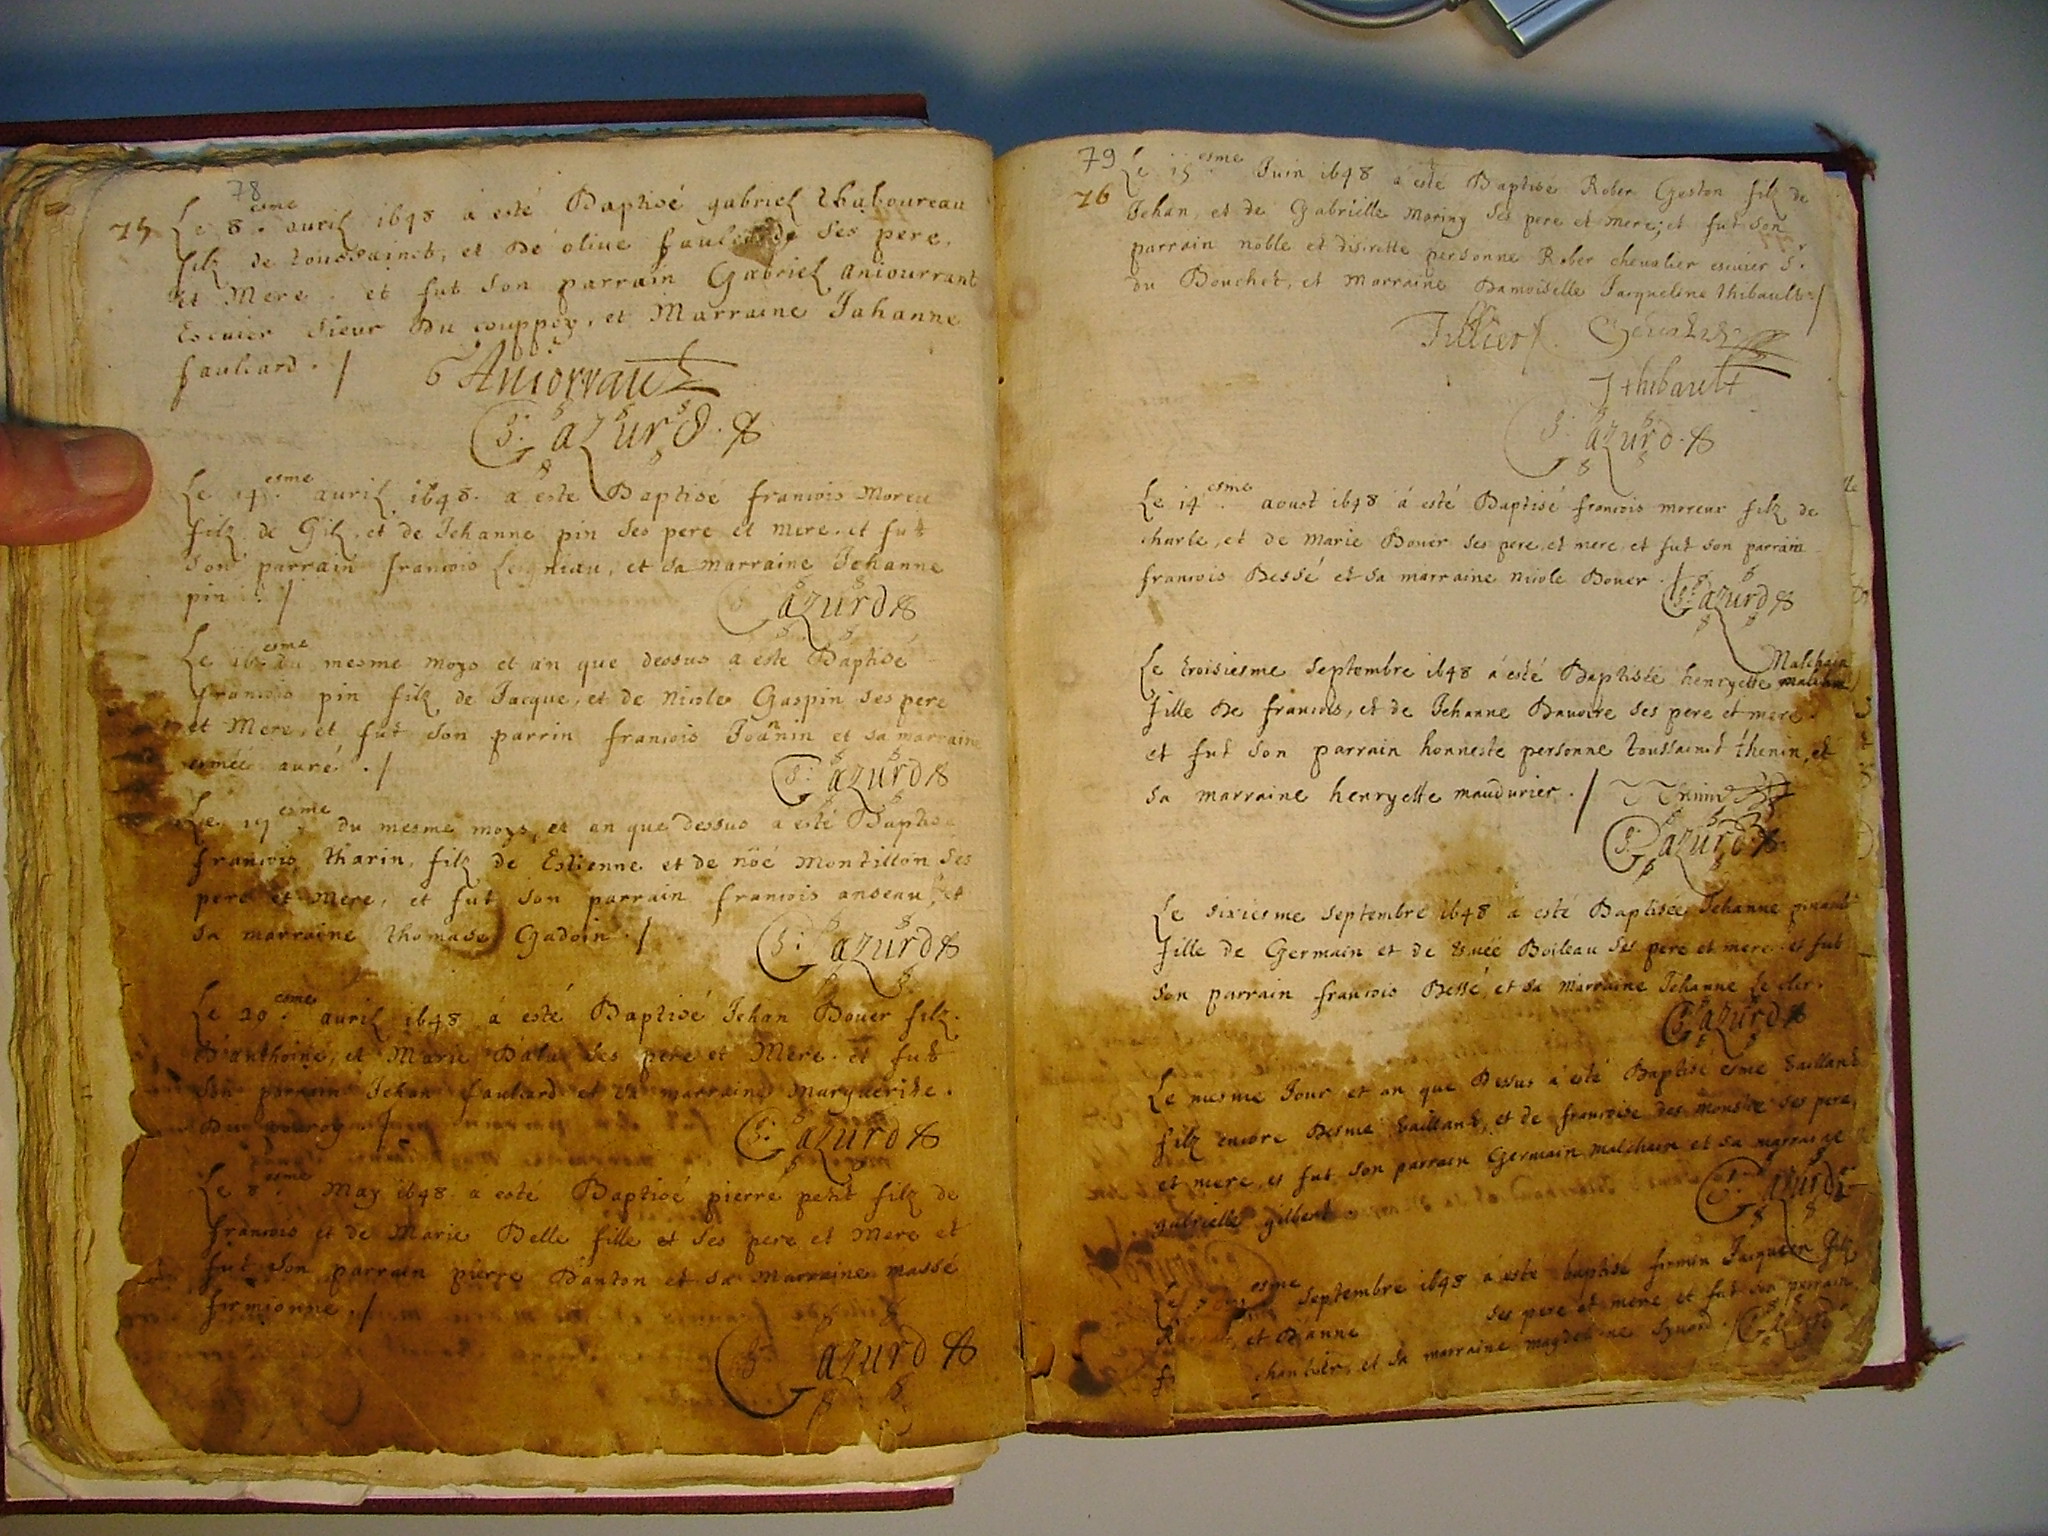 78
75 Le 8.esme auril 1648 a esté Baptisé gabriel thaboureau
filz de toussainct, et De oliue fauliarde ses pere,
et Mere. et fut son parrain Gabriel aniourrant
Escuier sieur Du couppoy, et Marraine Jahanne
fauliard. /
G Aniorrant
G: azurd.
Le 14.esme auril 1648. a esté Baptisé francois Moreu
filz de Gilz, et de Jehanne pin ses pere et mere. et fut
son parrain francois Leigniau, et sa marraine Jehanne
pin. /
G: azurd
Le 16.esme du mesme moys et an que dessus a esté Baptisé
francois pin filz de Jacque, et de Nicole Gaspin ses pere
et Mere, et fut son parrin francois Joanin et sa marraine
esmée auré . /
G: azurd
Le 19.esme du mesme moys, et an que dessus a esté Baptisé
francois tharin, filz de Estienne et de nöé Montillon ses
pere et Mere, et fut son parrain francois anseau, et
sa marraine thomase Gadoin . /
G: azurd
Le 20.esme auril 1648 a esté Baptisé Jehan Bouer filz.
D'anthoine, et Marie Dalu ses pere et Mere. et fut
son parrain Jehan fauliard et sa marraine Marguerite.
Du
G: azurd
Le 8.esme May 1648 a esté Baptisé pierre petit filz de
francois et de Marie Belle fille et ses pere et Mere et
fut son parrain pierre Danton et sa Marraine massé
firmionne . /
G: azurd
79
76 Le 15.esme Juin 1648 a esté Baptisé Rober Geston filz de
Jehan, et de Gabrielle Moriny ses pere et mere; et fut son
parrain noble et discrette personne Rober cheualier escuier Sr.
du Bouchet, et Marraine Damoiselle Jacqueline thibault /
Tillier
J thibault
G: azurd.
Le 14.esme aoust 1648 a esté Baptisé francois moreux filz de
charle, et de Marie Bouer ses pere, et mere, et fut son parrain
francois Bessé et sa marraine nicole Bouer . /
G: azurd
Le troisiesme septembre 1648 a esté Baptisée henryette Malchain
fille De francois, et de Jehanne Dauoire ses pere et mere.
et fut son parrain honneste personne toussainct thenin, et
sa marraine henryette maudurier . /
T Thenin
G: azurd
Le sixiesme septembre 1648 a esté Baptisée Jehanne pinault
fille de Germain et de Boileau ses pere et mere. et fut
son parrain francois Bessé, et sa Marraine Jehanne Le cler.
G: azurd
Le mesme Jour et an que Dessus a esté Baptisé esme Vaillant
filz encore Desme Vaillant, et de francoise des monste ses pere,
et mere, et fut son parrain Germain Malchain et sa marraine
gabrielle gilbert .
G: azurd
Le esme septembre 1648 a esté baptisé firmin Jacquelin filz
et D'anne ses pere et mere et fut son parrain
chantier, et sa marraine magdeleine
G: azurd